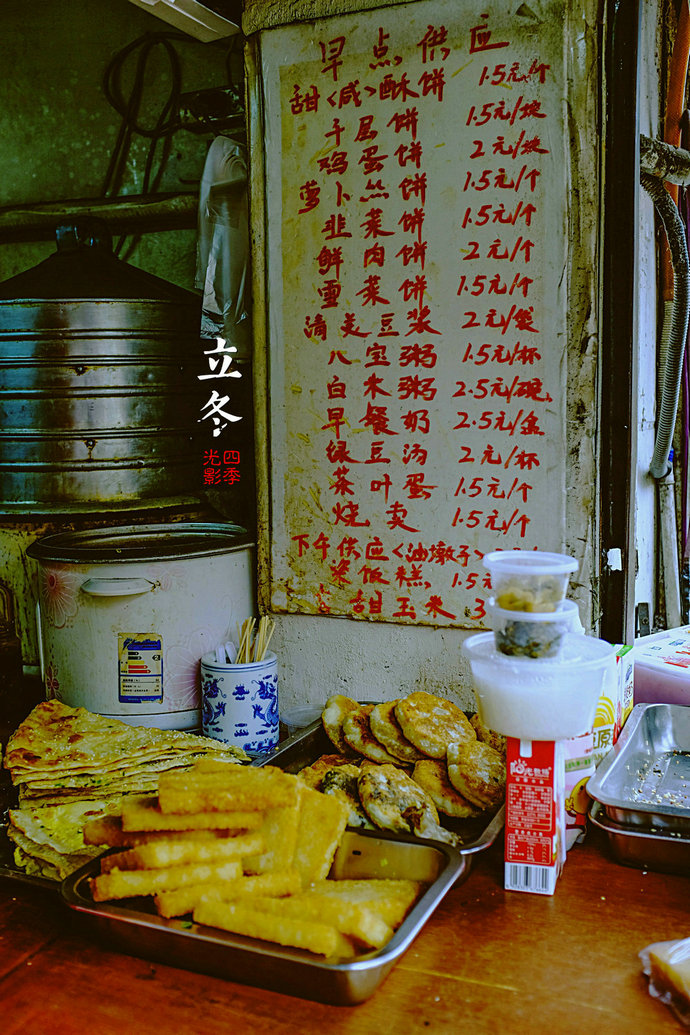 早点供应
甜<咸>酥饼 1.5元/个
千层饼 1.5元/块
鸡蛋饼 2元/块
萝卜丝饼 1.5元/个
韭菜饼 1.5元/个
鲜肉饼 2元/个
雪菜饼 1.5元/个
清美豆浆 2元/袋
八宝粥 1.5元/杯
白米粥 2.5元/碗
早餐奶 2.5元/盒
绿豆汤 2元/杯
茶叶蛋 1.5元/个
烧卖 1.5元/个
下午供应<油墩子>
粢饭糕 1.5元
甜玉米 3
立冬
四季
光影